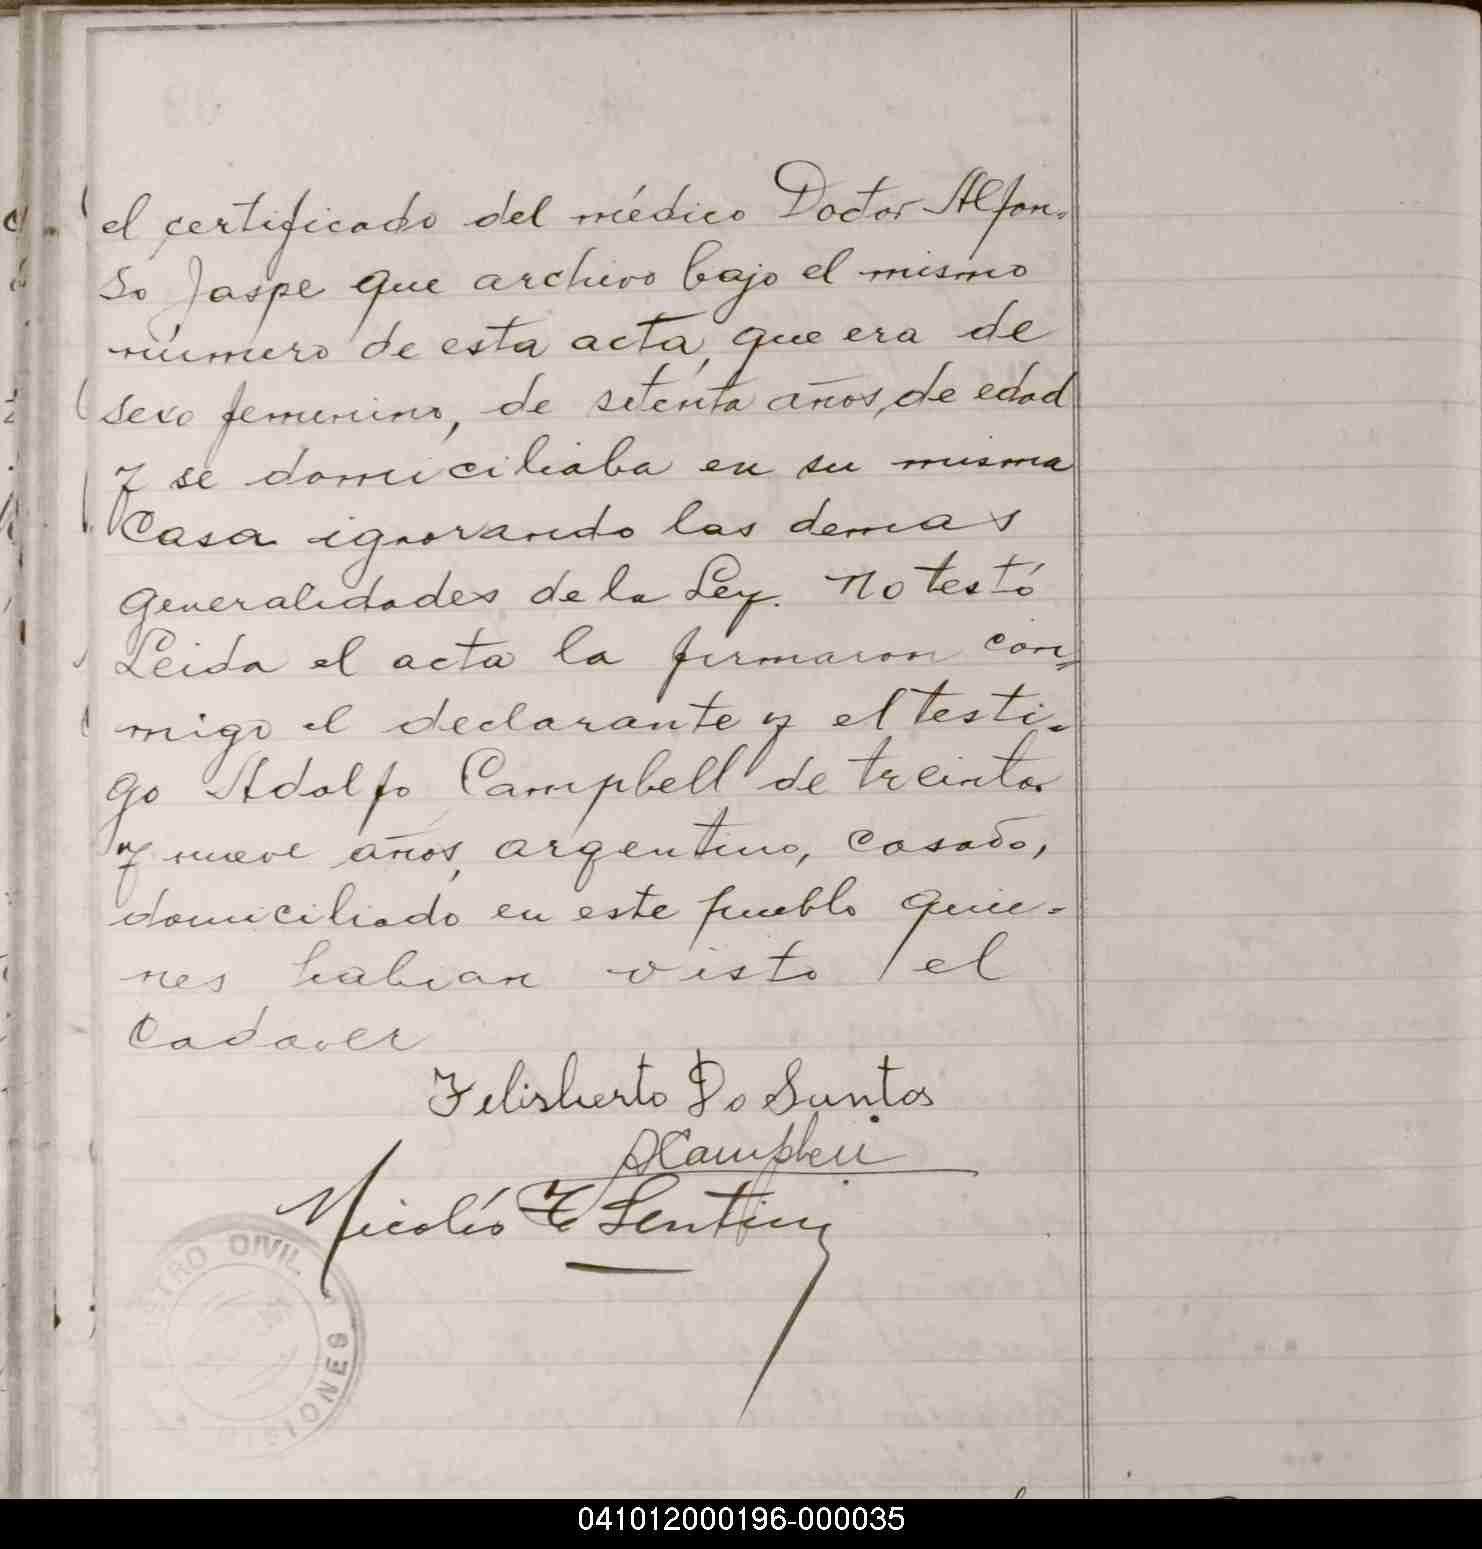 el certificado del médico Doctor Alfon-
so Jaspe que archivo bajo el mismo
número de esta acta, que era de
sexo femenino, de setenta años, de edad
y se domiciliaba en su misma
casa ignorando las demas
generalidades de la Ley. No testó
Leida el acta la firmaron con=
migo el declarante y el testi=
go Adolfo Campbell de treinta
y nueve años, argentino, casado,
domiciliado en este pueblo quie=
nes habian visto el
cadaver
Felisberto Do Santos
ACampbell
Nicolás F Sentiny
TRO CIVIL
MISIONES
041012000196-000035